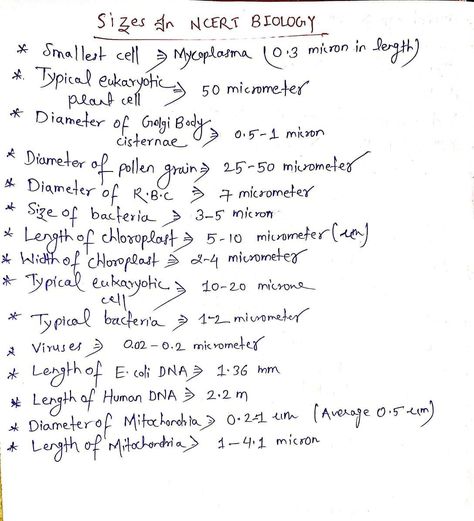 Sizes in NCERT BIOLOGY
* Smallest cell ⇒ Mycoplasma (0.3 micron in length)
* Typical eukaryotic
plant cell ⇒ 50 micrometer
* Diameter of Golgi Body
cisternae ⇒ 0.5-1 mikron
* Diameter of pollen grain ⇒ 25-50 micrometer
* Diameter of R.B.C ⇒ 7 micrometer
* Size of bacteria ⇒ 3-5 micron
* Length of chloroplast ⇒ 5-10 micrometer (um)
* Width of chloroplast ⇒ 2-4 micrometer
* Typical eukaryotic
cell ⇒ 10-20 microne
* Typical bacteria ⇒ 1-2 micrometer
* Viruses ⇒ 0.02-0.2 micrometer
* Length of E. coli DNA ⇒ 1.36 mm
* Length of Human DNA ⇒ 2.2 m
* Diameter of Mitochondria ⇒ 0.2-1 um (Average 0.5 um)
* Length of Mitochondria ⇒ 1-4.1 micron